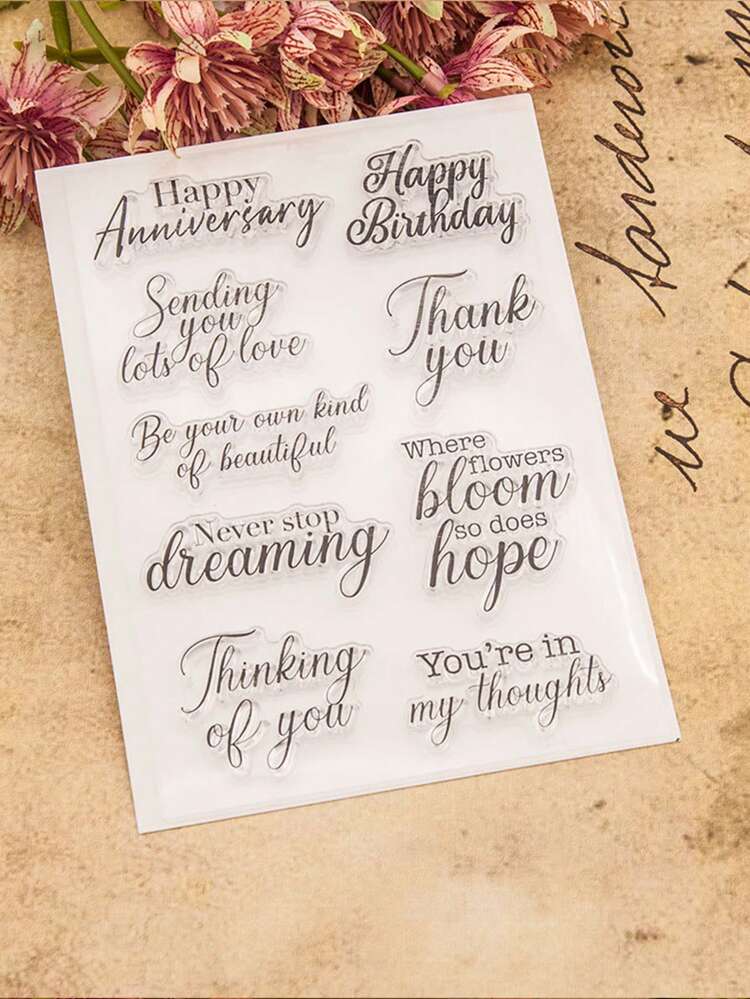 Happy
Anniversary
Happy
Birthday
Sending
you
lots of love
Thank
you
Be your own kind
of beautiful
Where
flowers
bloom
so does
hope
Never stop
dreaming
Thinking
of you
You're in
my thoughts